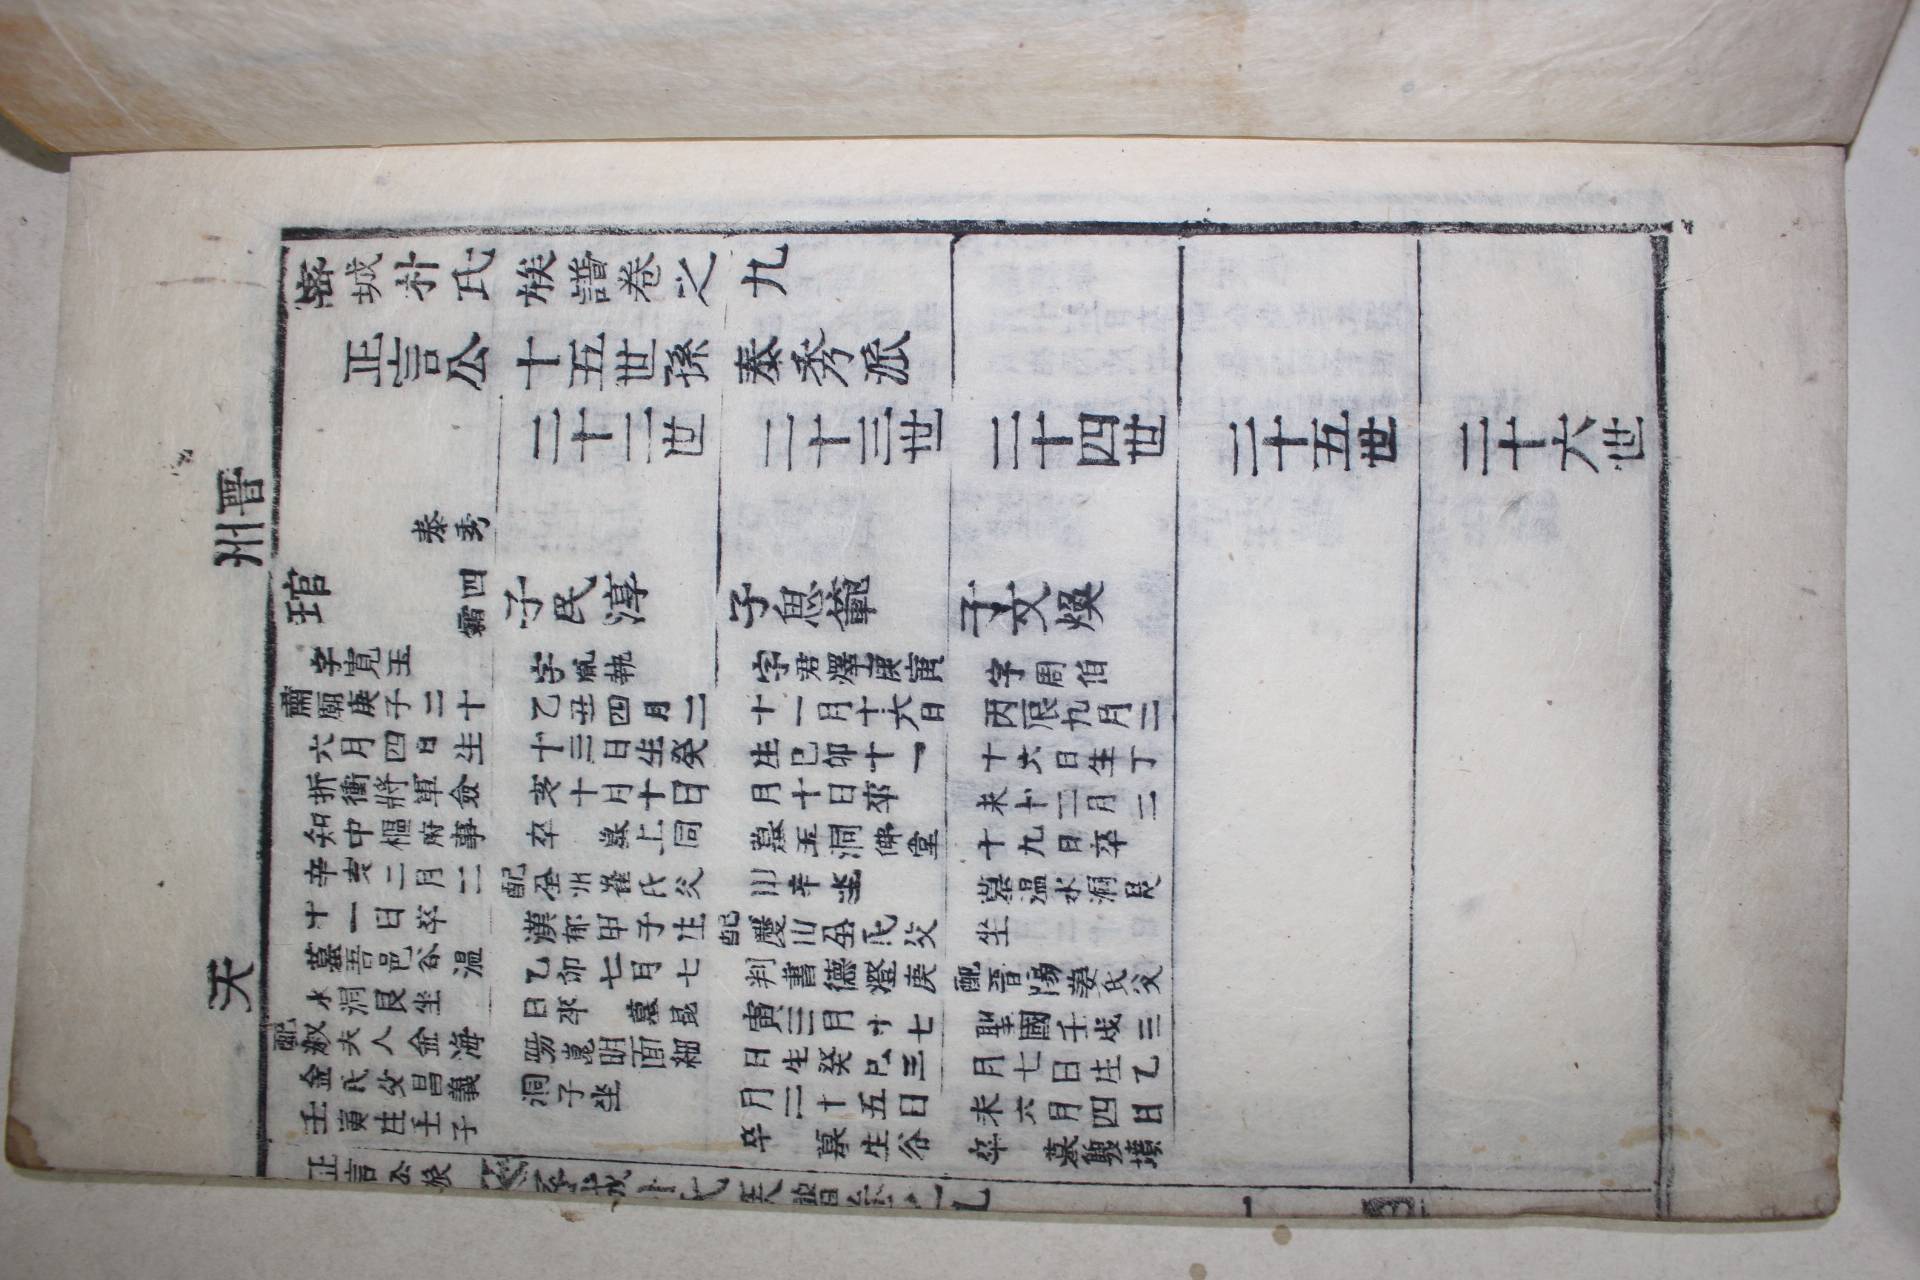 晋州
天
密城朴氏族譜卷之九
正言公十五世孫泰秀派
二十二世
二十三世
二十四世
二十五世
二十六世
泰秀
四
霜
琯
字寬玉
肅廟庚子二十
六月四日生
折衝將軍僉
知中樞府事
辛亥二月二
十一日卒
墓吾邑谷溫
水洞艮坐
配淑夫人金海
金氏父昌義
壬寅生壬子
子民淳
字胤執
乙丑四月二
十三日生癸
亥十月十日
卒 墓上同
配全州崔氏父
漢郁甲子生
乙卯七月七
日卒 墓昆
陽崑明面細
洞子坐
子思範
字君澤庚寅
十一月十六日
生己卯十一
月十日卒
墓玉洞佛堂
川辛坐
配慶州金氏父
判書德澄庚
寅三月十七
日生癸巳三
月二十五日
卒 墓生谷
子文煥
字周伯
丙辰九月二
十六日生丁
未十二月二
十九日卒
墓溫水洞艮
坐
配晉陽姜氏父
聖國壬戌三
月七日生乙
未六月四日
卒 墓雙墳
正言公派
密城朴氏族譜卷之九
一